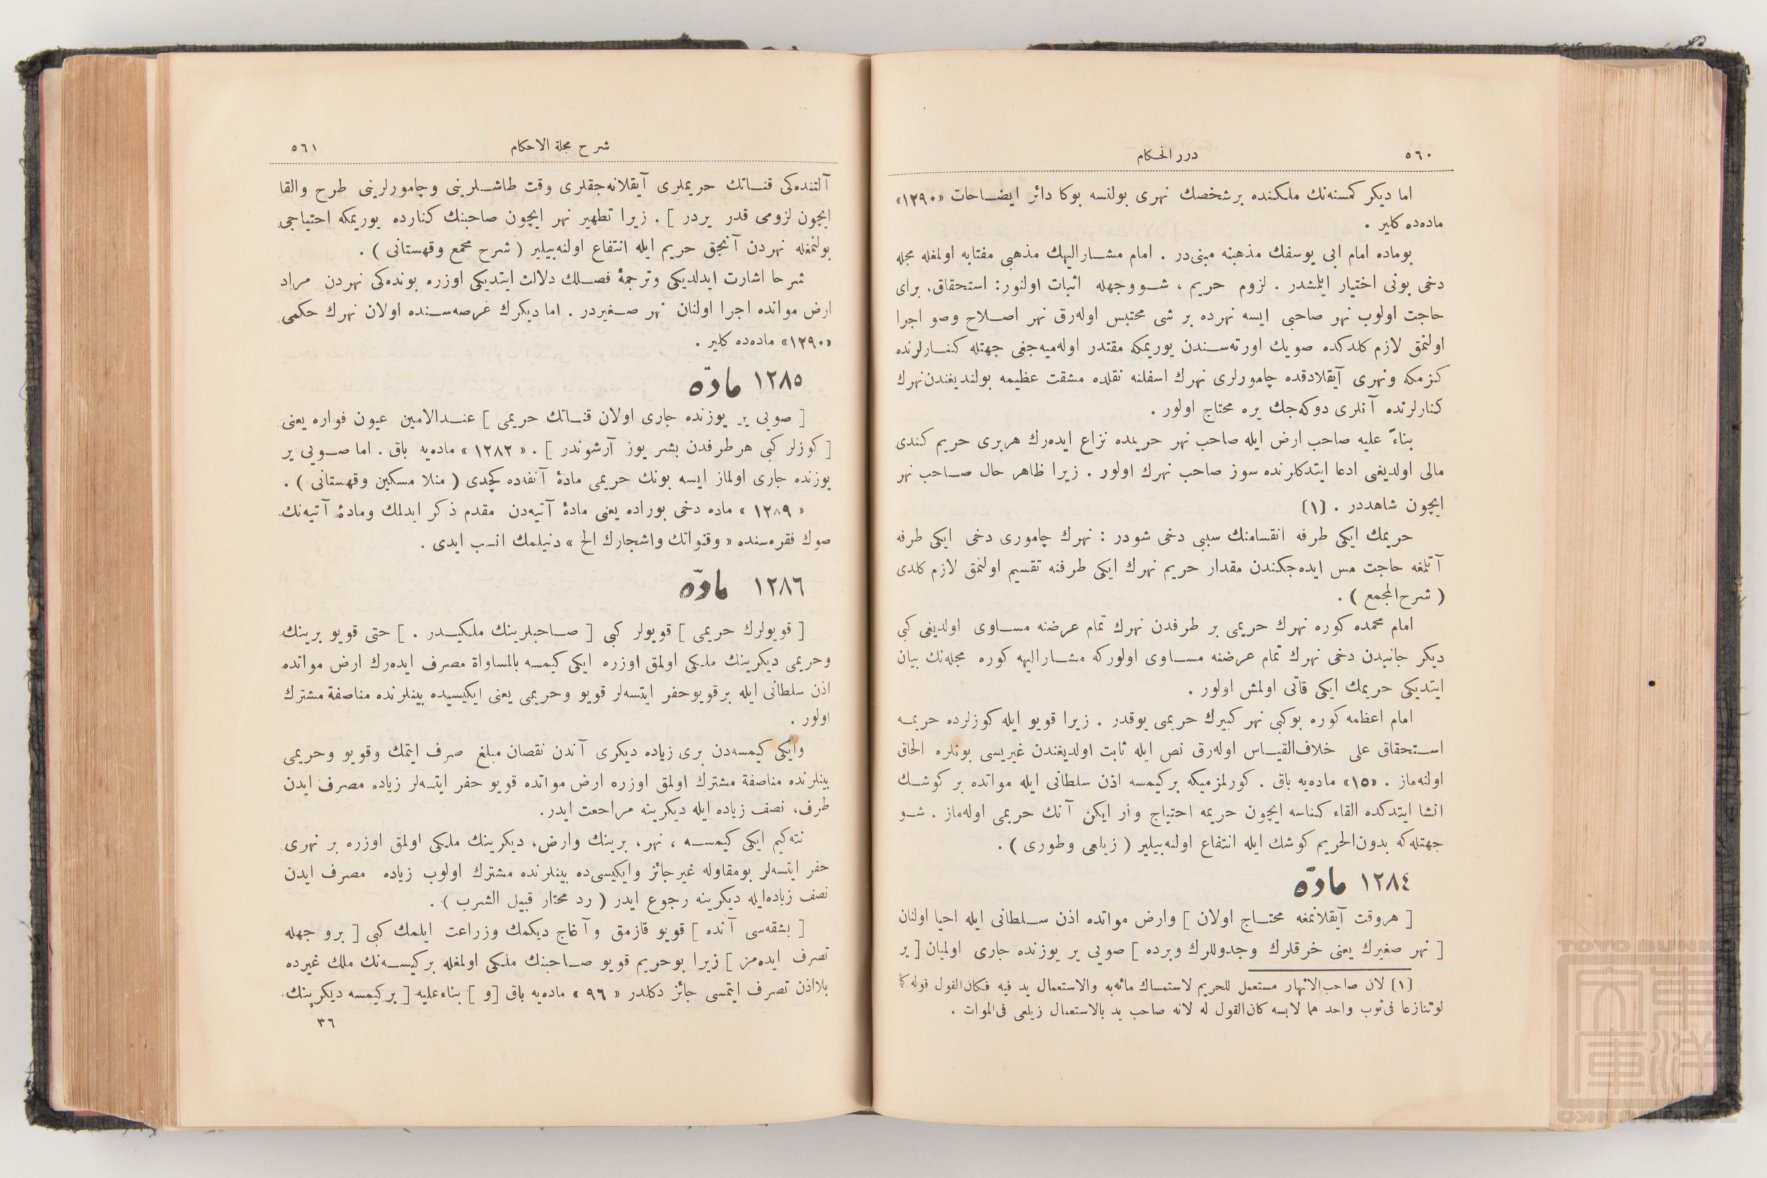 ٥٦٠
درر الحكام
اما ديكر كمسنه‌نك ملكنده برشخصك نهری بولنسه بوكا دائر ايضاحات «١٢٩٠»
ماده‌ده كلير .
بوماده امام ابی يوسفك مذهبنه مبنی‌در . امام مشاراليهك مذهبی مفتابه اولمغله مجله
دخی بونی اختيار ايلمشدر . لزوم حريم ، شووجهله اثبات اولنور : استحقاق، برای
حاجت اولوب نهر صاحبی ايسه نهرده بر شی محتبس اوله‌رق نهر اصلاح وصو اجرا
اولنمق لازم كلدكده صويك اورته‌سندن يوريمكه مقتدر اوله‌ميه‌جغی جهتله كنارلرنده
كزمكه ونهری آيقلادقده چامورلری نهرك اسفلنه نقلده مشقت عظيمه بولنديغندن نهرك
كنارلرنده آنلری دوكه‌جك يره محتاج اولور .
بناءً عليه صاحب ارض ايله صاحب نهر حريمده نزاع ايده‌رك هربری حريم كندی
مالی اولديغنی ادعا ايتدكلرنده سوز صاحب نهرك اولور . زيرا ظاهر حال صاحب نهر
ايچون شاهددر . (١)
حريمك ايكی طرفه انقسامنك سببی دخی شودر : نهرك چاموری دخی ايكی طرفه
آتلمغه حاجت مس ايده‌جكندن مقدار حريم نهرك ايكی طرفنه تقسيم اولنمق لازم كلدی
( شرح المجمع ) .
امام محمده كوره نهرك حريمی بر طرفدن نهرك تمام عرضنه مساوی اولديغی كبی
ديكر جانبدن دخی نهرك تمام عرضنه مساوی اولوركه مشاراليهه كوره مجله‌نك بيان
ايتديكی حريمك ايكی قاتی اولمش اولور .
امام اعظمه كوره بوكبی نهر كبيرك حريمی يوقدر . زيرا قويو ايله كوزلرده حريمه
استحقاق علی خلاف القياس اوله‌رق نص ايله ثابت اولديغندن غيريسی بونلره الحاق
اولنه‌ماز . «١٥» ماده‌يه باق . كورلمزميكه بركيمسه اذن سلطانی ايله مواتده بر كوشك
انشا ايتدكده القاء كناسه ايچون حريمه احتياج وار ايكن آنك حريمی اوله‌ماز . شو
جهتله‌كه بدون الحريم كوشك ايله انتفاع اولنه‌بيلير ( زيلعی وطوری ) .
١٢٨٤ مادّه
[ هروقت آيقلانمغه محتاج اولان ] وارض مواتده اذن سلطانی ايله احيا اولنان
[ نهر صغيرك يعنی خرقلرك وجدوللرك وبرده ] صويی ير يوزنده جاری اولميان [ ير
(١) لان صاحب الانهار مستعمل للحريم لاستمساك مائه به والاستعمال يد فيه فكان القول قوله كما
لوتنازعا فی ثوب واحد هما لابسه كان القول له لانه صاحب يد بالاستعمال زيلعی فی الموات .
شرح مجلة الاحكام
٥٦١
آلتنده‌كی قناتك حريملری آيقلانه‌جقلری وقت طاشلرينی وچامورلرينی طرح والقا
ايچون لزومی قدر يردر ] . زيرا تطهير نهر ايچون صاحبنك كنارده يوريمكه احتياجی
بولنمغله نهردن آنجق حريم ايله انتفاع اولنه‌بيلير ( شرح مجمع وقهستانی ) .
شرحا اشارت ايدلديكی وترجمهٔ فصلك دلالت ايتديكی اوزره بونده‌كی نهردن مراد
ارض مواتده اجرا اولنان نهر صغيردر . اما ديكرك عرصه‌سنده اولان نهرك حكمی
«١٢٩٠» ماده‌ده كلير .
١٢٨٥ مادّه
[ صويی ير يوزنده جاری اولان قناتك حريمی ] عندالامين عيون فواره يعنی
[ كوزلر كبی هرطرفدن بشر يوز آرشوندر ] . « ١٢٨٢ » ماده‌يه باق . اما صويی ير
يوزنده جاری اولماز ايسه بونك حريمی مادهٔ آنفه‌ده كچدی ( منلا مسكين وقهستانی ) .
« ١٢٨٩ » ماده دخی بوراده يعنی مادهٔ آتيه‌دن مقدم ذكر ايدلمك ومادهٔ آتيه‌نك
صوك فقره‌سنده « وقنواتك واشجارك الخ » دنيلمك انسب ايدی .
١٢٨٦ مادّه
[ قويولرك حريمی ] قويولر كبی [ صاحبلرينك ملكيدر . ] حتی قويو برينك
وحريمی ديكرينك ملكی اولمق اوزره ايكی كيمسه بالمساواة مصرف ايده‌رك ارض مواتده
اذن سلطانی ايله برقويو حفر ايتسه‌لر قويو وحريمی يعنی ايكيسيده بينلرنده مناصفة مشترك
اولور .
وايكی كيمسه‌دن بری زياده ديكری آندن نقصان مبلغ صرف ايتمك وقويو وحريمی
بينلرنده مناصفة مشترك اولمق اوزره ارض مواتده قويو حفر ايتسه‌لر زياده مصرف ايدن
طرف، نصف زياده ايله ديكرينه مراجعت ايدر.
نته‌كيم ايكی كيمسه ، نهر، برينك وارض، ديكرينك ملكی اولمق اوزره بر نهری
حفر ايتسه‌لر بومقاوله غيرجائز وايكيسی‌ده بينلرنده مشترك اولوب زياده مصرف ايدن
نصف زياده‌ايله ديكرينه رجوع ايدر ( رد محتار قبيل الشرب ) .
[ بشقه‌سی آنده ] قويو قازمق وآغاج ديكمك وزراعت ايلمك كبی [ برو جهله
تصرف ايده‌مز ] زيرا بوحريم قويو صاحبنك ملكی اولمغله بركيسه‌نك ملك غيرده
بلااذن تصرف ايتمسی جائز دكلدر « ٩٦ » ماده‌يه باق [و ] بناءعليه [ بركيمسه ديكرينك
٣٦